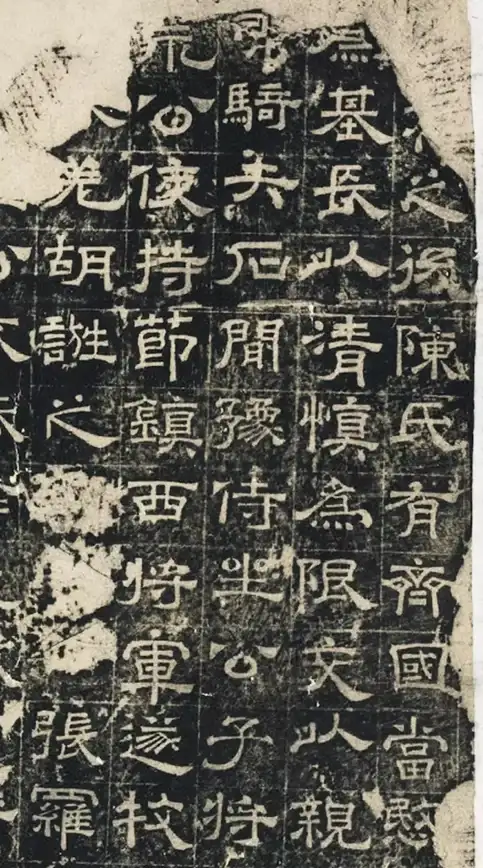 之後陳氏有齊國當愍
基長以清慎為限交以親
騎夫石閒豫侍坐公子將
公使持節鎮西將軍遂牧
羌胡誑之張羅